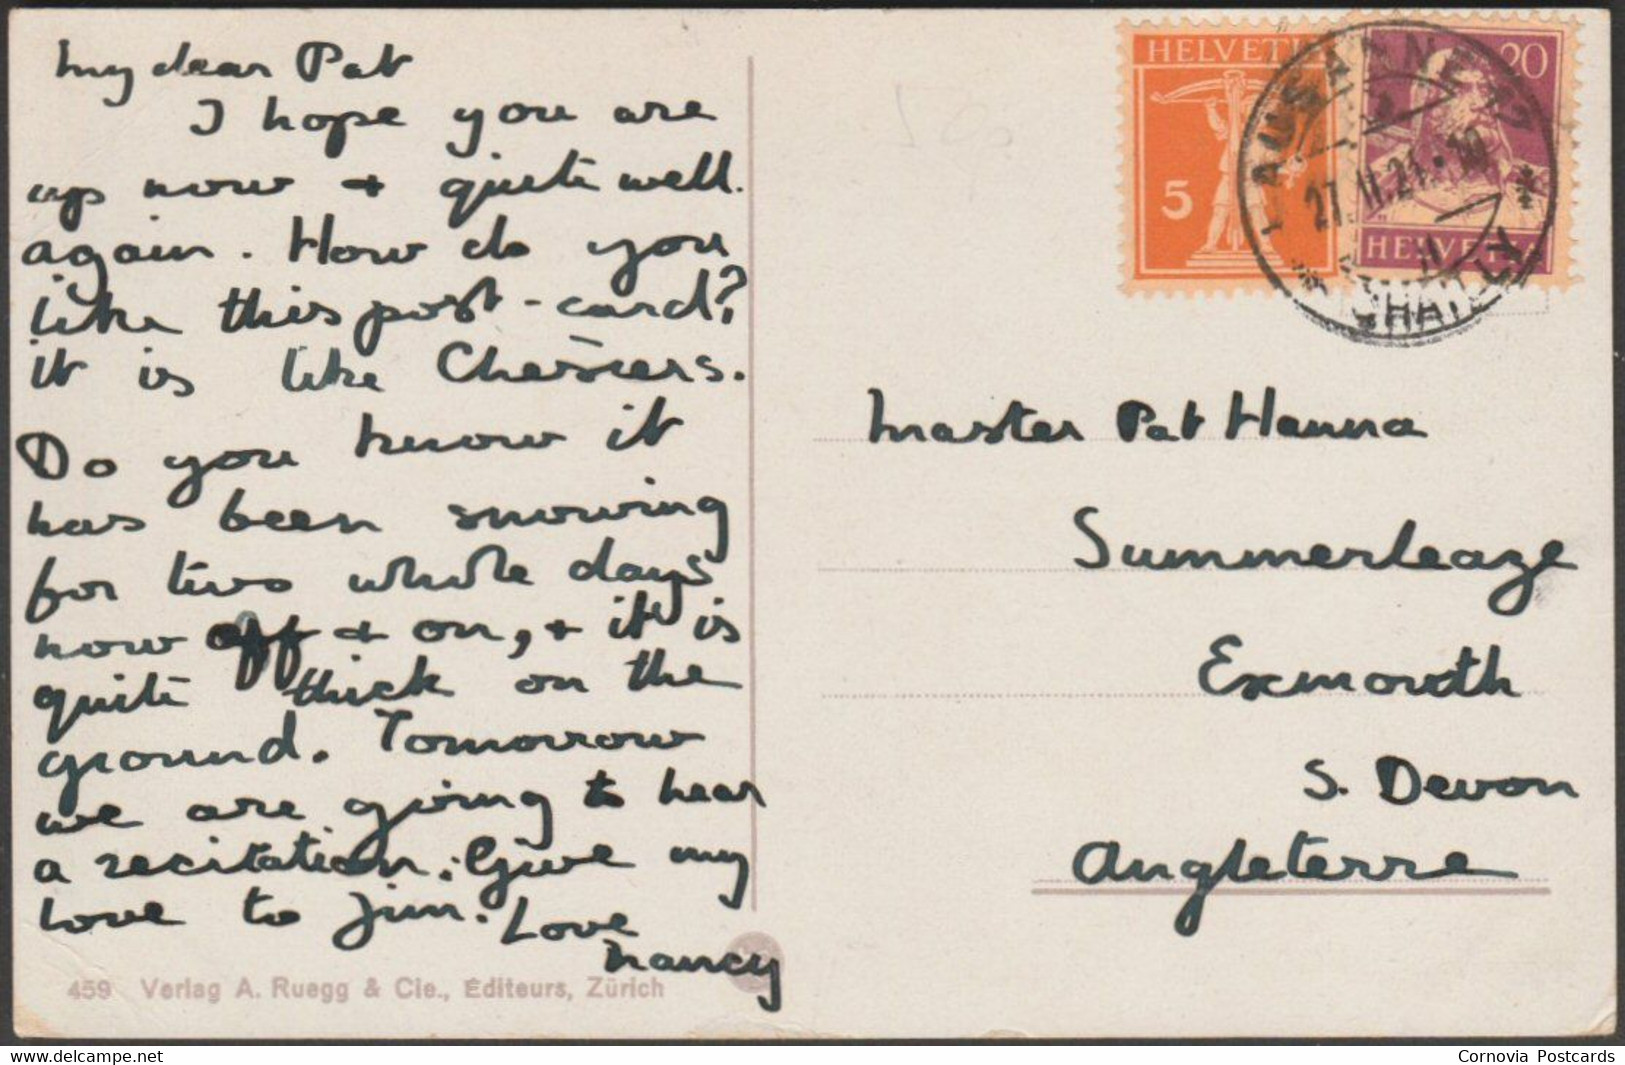 My dear Pat
I hope you are
up now & quite well
again. How do you
like this post-card?
it is like Chesiers.
Do you know it
has been snowing
for two whole days
now off & on, & it is
quite thick on the
ground. Tomorrow
we are going to hear
a recitation. Give my
love to Jim. Love
Nancy
459 Verlag A. Ruegg & Cie., Éditeurs, Zürich
HELVETIA
5
20
HELVETIA
LAUSANNE
27.II.21.
CHAILLY
Master Pat Hanna
Summerleaze
Exmouth
S. Devon
Angleterre
www.delcampe.net
Cornovia Postcards